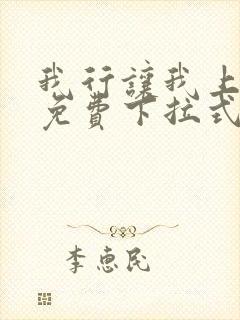 我行讓我上
免費下拉式
李惠民